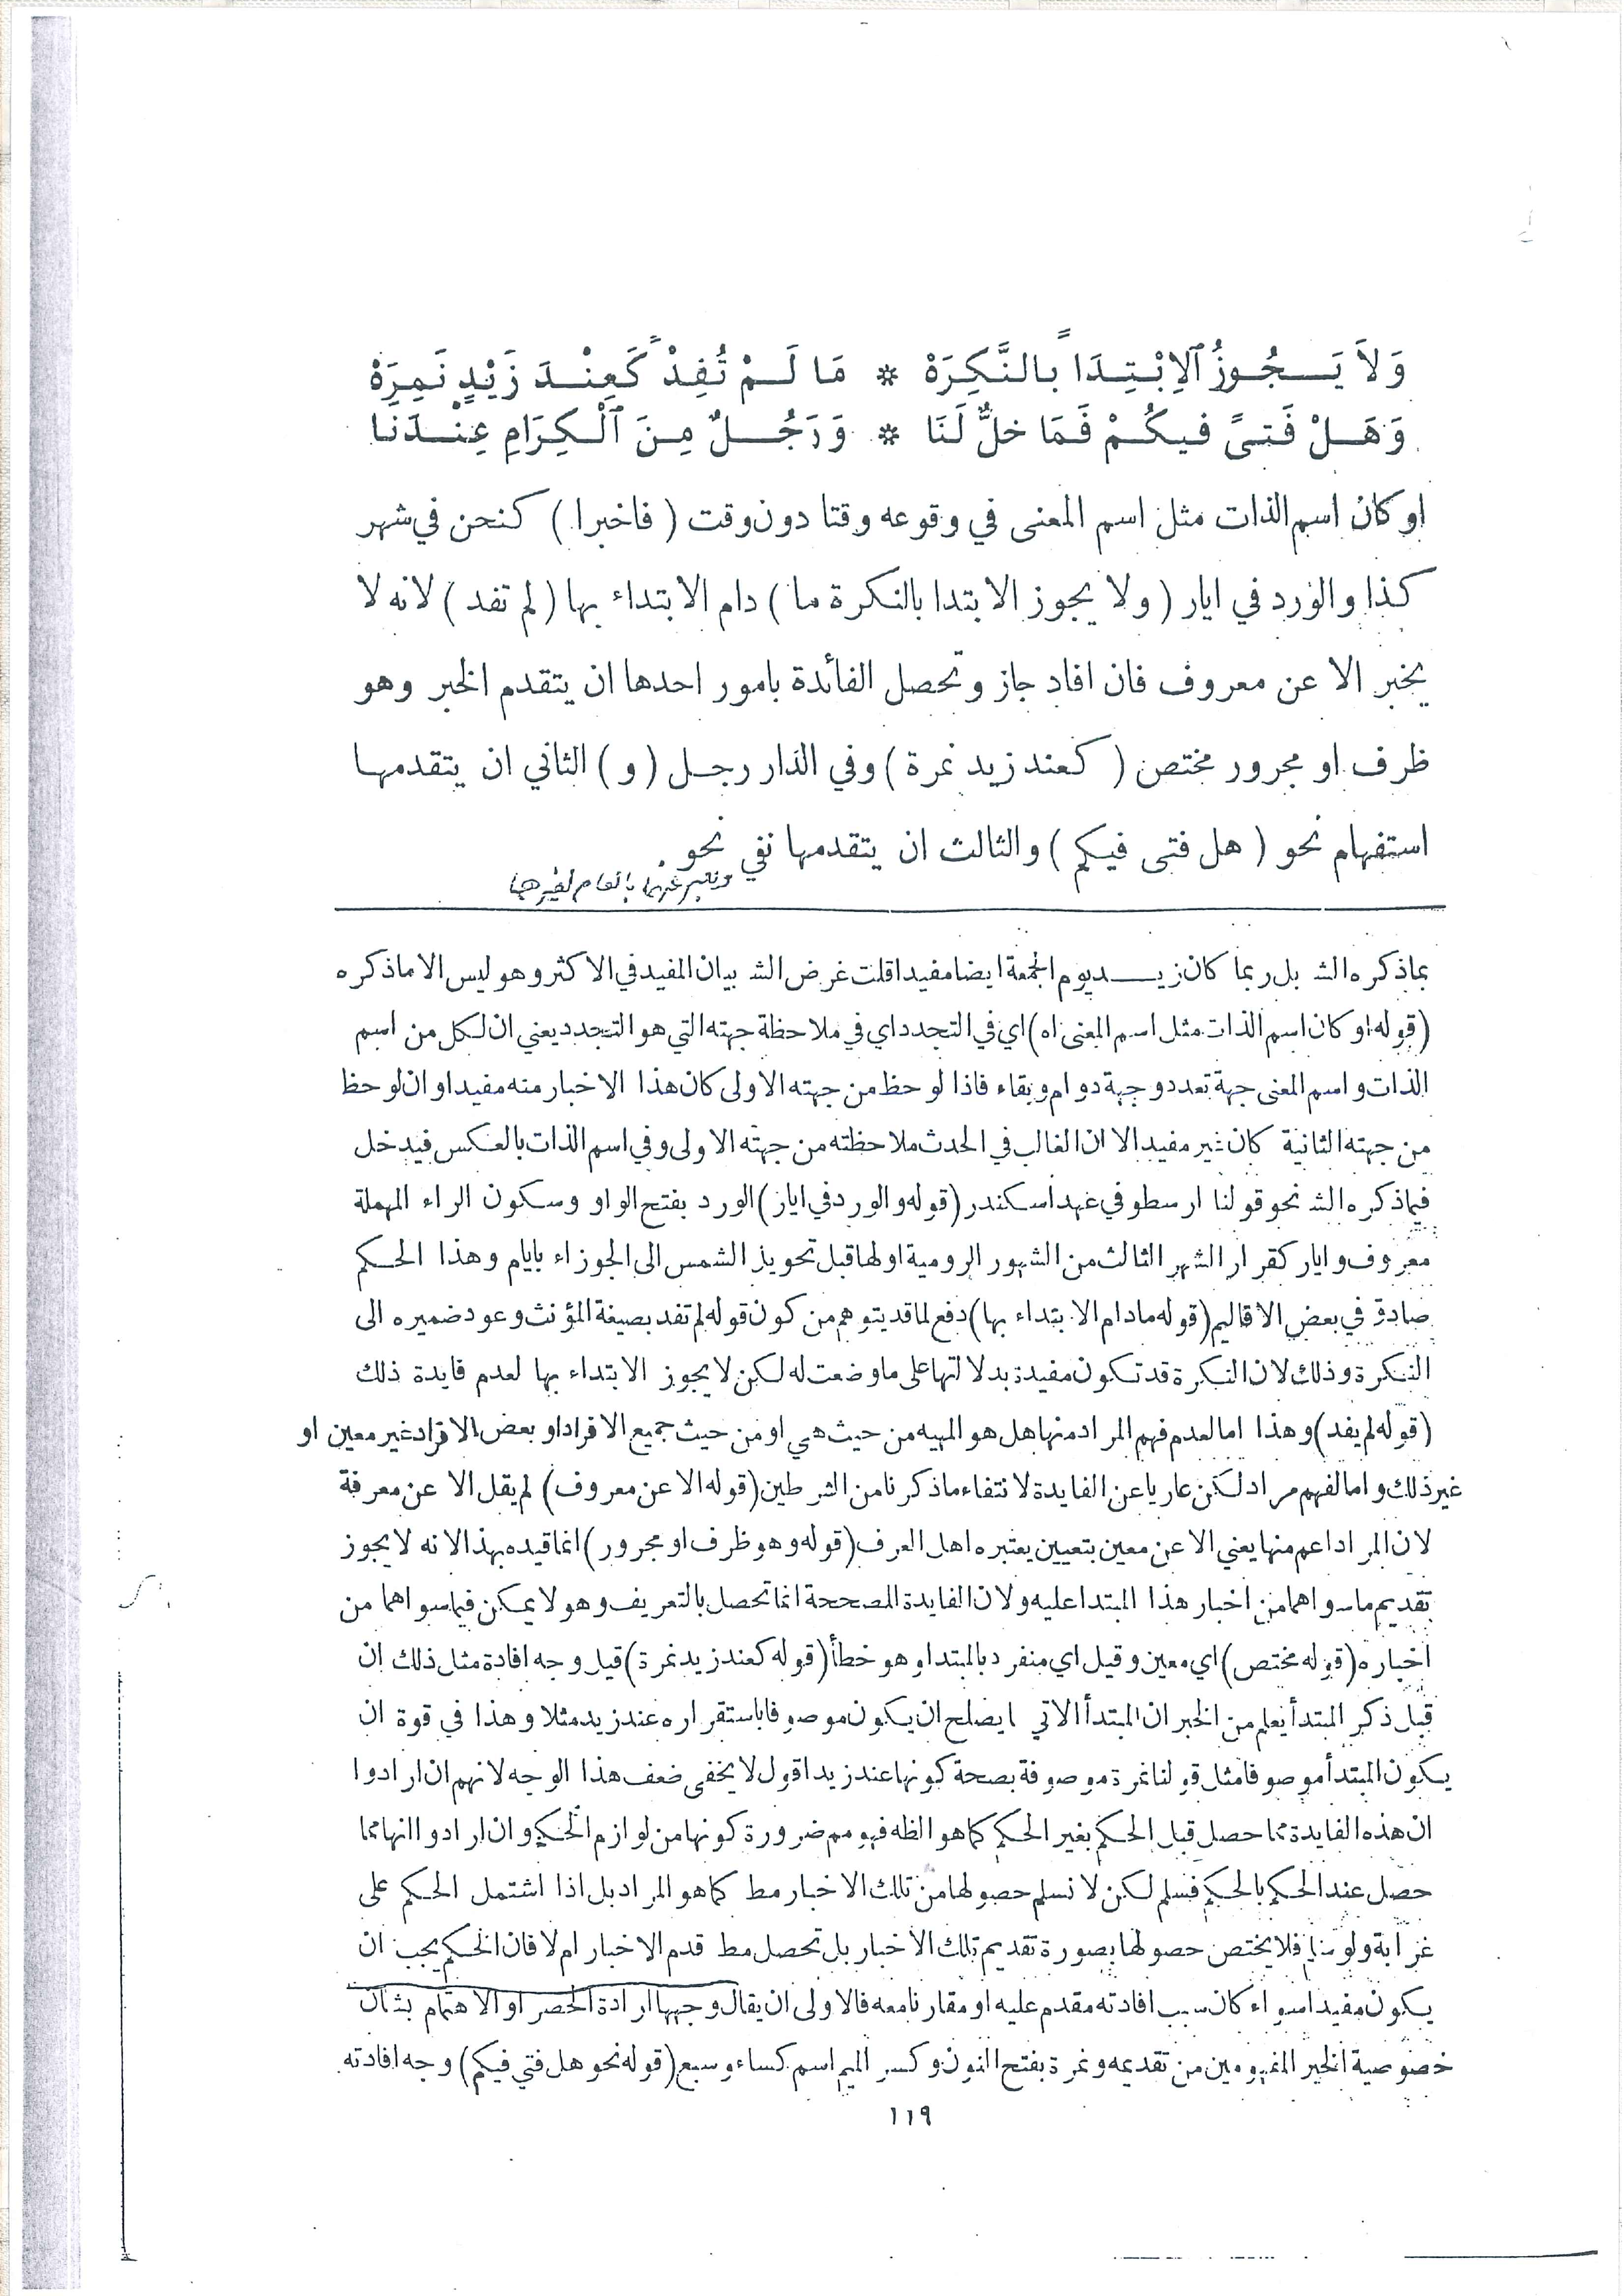 وَلاَ يَجُوزُ ٱلاِبْتِدَا بالنَّكِرَهْ * مَا لَمْ تُفِدْ كَعِنْدَ زَيْدٍ نَمِرَهْ
وَهَلْ فَتىً فيكُمْ فَمَا خلٌّ لَنَا * وَرَجُلٌ مِنَ ٱلْكِرَامِ عِنْدَنَا
او كان اسم الذات مثل اسم المعنى في وقوعه وقتا دون وقت ( فاخبرا ) كنحن في شهر
كذا والورد في ايار ( ولا يجوز الابتدا بالنكرة ما ) دام الابتداء بها ( لم تفد ) لانه لا
يخبر الا عن معروف فان افاد جاز وتحصل الفائدة بامور احدها ان يتقدم الخبر وهو
ظرف او مجرور مختص ( كعند زيد نمرة ) وفي الدار رجل ( و ) الثاني ان يتقدمها
استفهام نحو ( هل فتى فيكم ) والثالث ان يتقدمها نفي نحو
بماذكره الشـ بل ربما كان زيـد يوم الجمعة ايضا مفيدا قلت غرض الشـ بيان المفيد في الاكثر وهو ليس الا ماذكره
(قوله او كان اسم الذات مثل اسم المعنى اه) اي في التجدد اي في ملاحظة جهته التي هو التجدد يعني ان لكل من اسم
الذات و اسم المعنى جهة تعدد وجهة دوام وبقاء فاذا لوحظ من جهته الاولى كان هذا الاخبار منه مفيدا و ان لوحظ
من جهته الثانية كان غير مفيد الا ان الغالب في الحدث ملاحظته من جهته الاولى وفي اسم الذات بالعكس فيدخل
فيماذكره الشـ نحو قولنا ارسطو في عهد اسكندر (قوله والورد في ايار) الورد بفتح الواو وسكون الراء المهملة
معروف وايار كقرار الشهر الثالث من الشهور الرومية اولها قبل تحويل الشمس الى الجوزاء بايام وهذا الحكم
صادق في بعض الاقاليم (قوله مادام الابتداء بها) دفع لما قد يتوهم من كون قوله لم تفد بصيغة المؤنث وعود ضميره الى
النكرة وذلك لان النكرة قد تكون مفيدة بدلالتها على ماوضعت له لكن لا يجوز الابتداء بها لعدم فايدة ذلك
(قوله لم يفد) وهذا اما لعدم فهم المراد منها هل هو المهيه من حيث هي او من حيث جميع الافراد او بعض الافراد غير معين او
غير ذلك و اما لفهم مراد لكن عاريا عن الفايدة لانتفاء ماذكرنا من الشرطين (قوله الا عن معروف) لم يقل الا عن معرفة
لان المراد اعم منها يعني الا عن معين بتعيين يعتبره اهل العرف (قوله وهو ظرف او مجرور) انما قيده بهذا لانه لا يجوز
تقديم ماسواهما من اخبار هذا المبتدا عليه ولان الفايدة المصححة انما تحصل بالتعريف وهو لا يمكن فيماسواهما من
اخباره (قوله مختص) اي معين وقيل اي منفرد بالمبتدا وهو خطأ (قوله كعند زيد نمرة) قيل وجه افادة مثل ذلك ان
قبل ذكر المبتدأ يعلم من الخبر ان المبتدأ الاتي يصلح ان يكون موصوفا باستقراره عند زيد مثلا وهذا في قوة ان
يكون المبتدأ موصوفا مثل قولنا نمرة موصوفة بصحة كونها عند زيد اقول لا يخفى ضعف هذا الوجه لانهم ان ارادوا
ان هذه الفايدة مما حصل قبل الحكم بغير الحكم كما هو الظه فهو مم ضرورة كونها من لوازم الحكم و ان ارادوا انها مما
حصل عند الحكم بالحكم فسلم لكن لا نسلم حصولها من تلك الاخبار مط كما هو المراد بل اذا اشتمل الحكم على
غرابة ولو سلم فلا يختص حصولها بصورة تقديم تلك الاخبار بل تحصل مط قدم الاخبار ام لا فان الحكم يجب ان
يكون مفيدا سواء كان سبب افادته مقدم عليه او مقارنا معه فالاولى ان يقال وجهها ارادة الحصر او الاهتمام بشان
خصوصية الخبر المفهومين من تقديمه ونمرة بفتح النون وكسر الميم اسم كساء وسبع (قوله نحو هل فتي فيكم) وجه افادته
١١٩